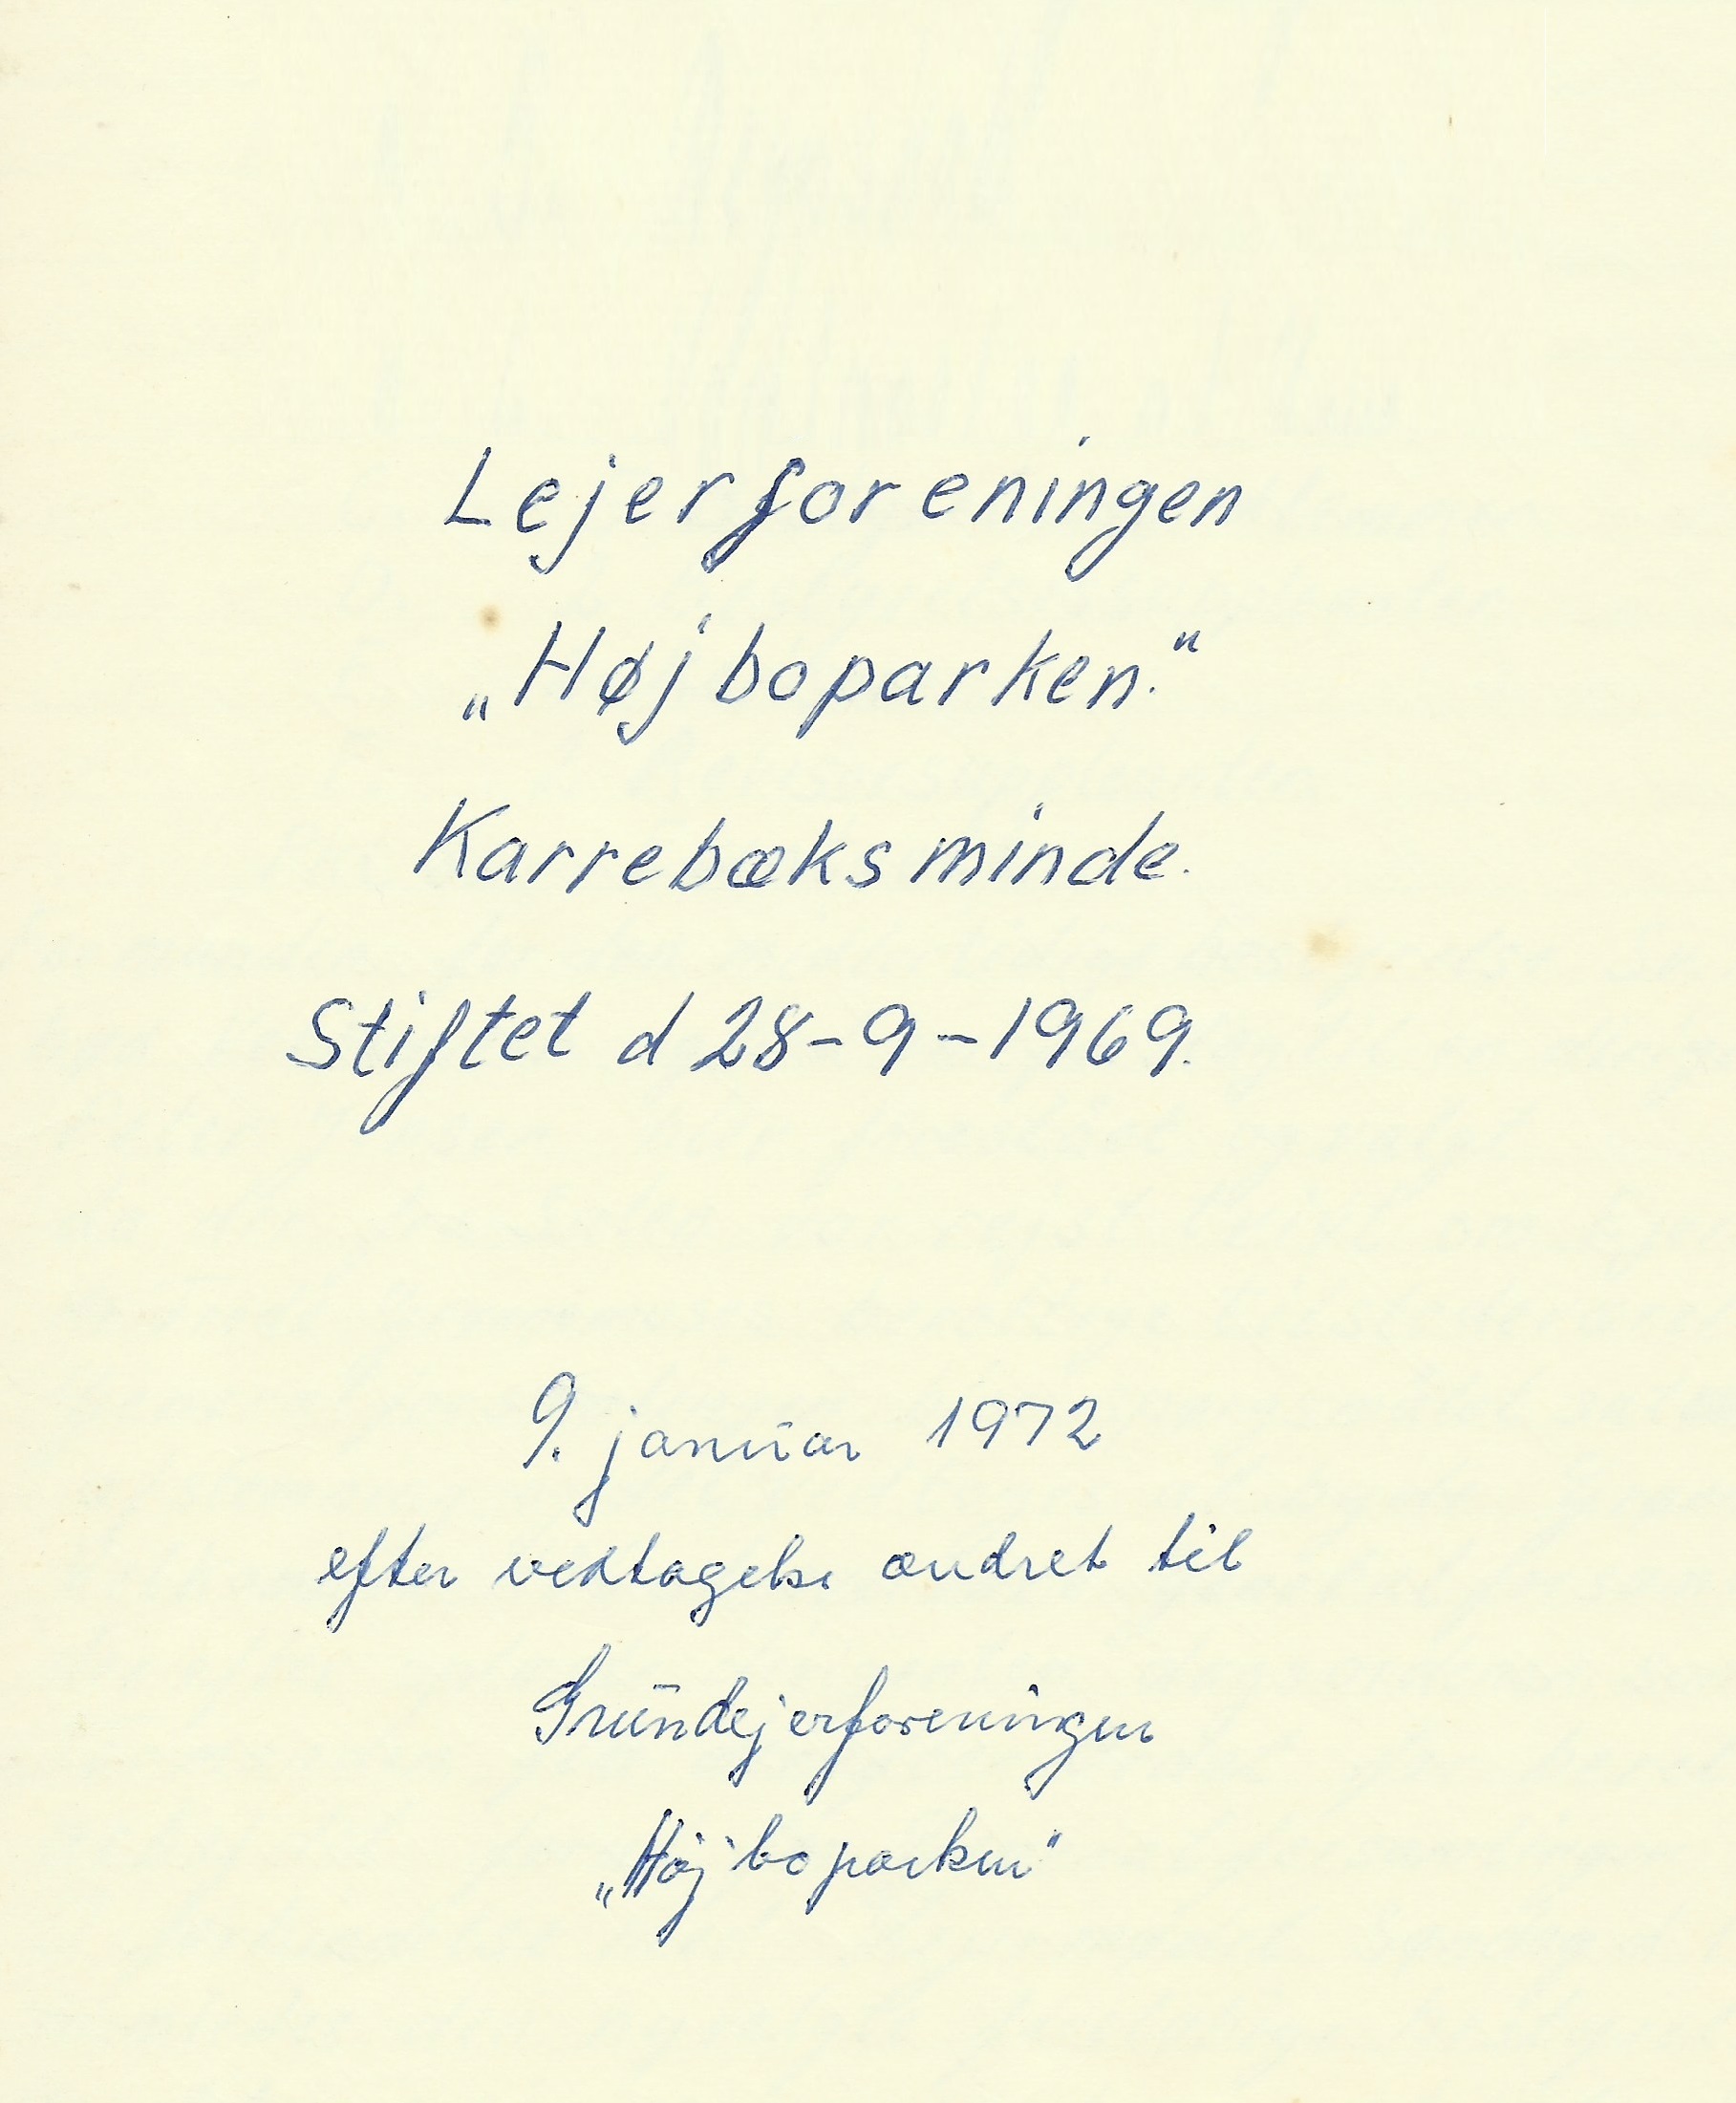 Lejerforeningen
„Højboparken."
Karrebæksminde.
Stiftet d 28-9-1969.
9. januar 1972
efter vedtagelse ændret til
Grundejerforeningen
„Højboparken"